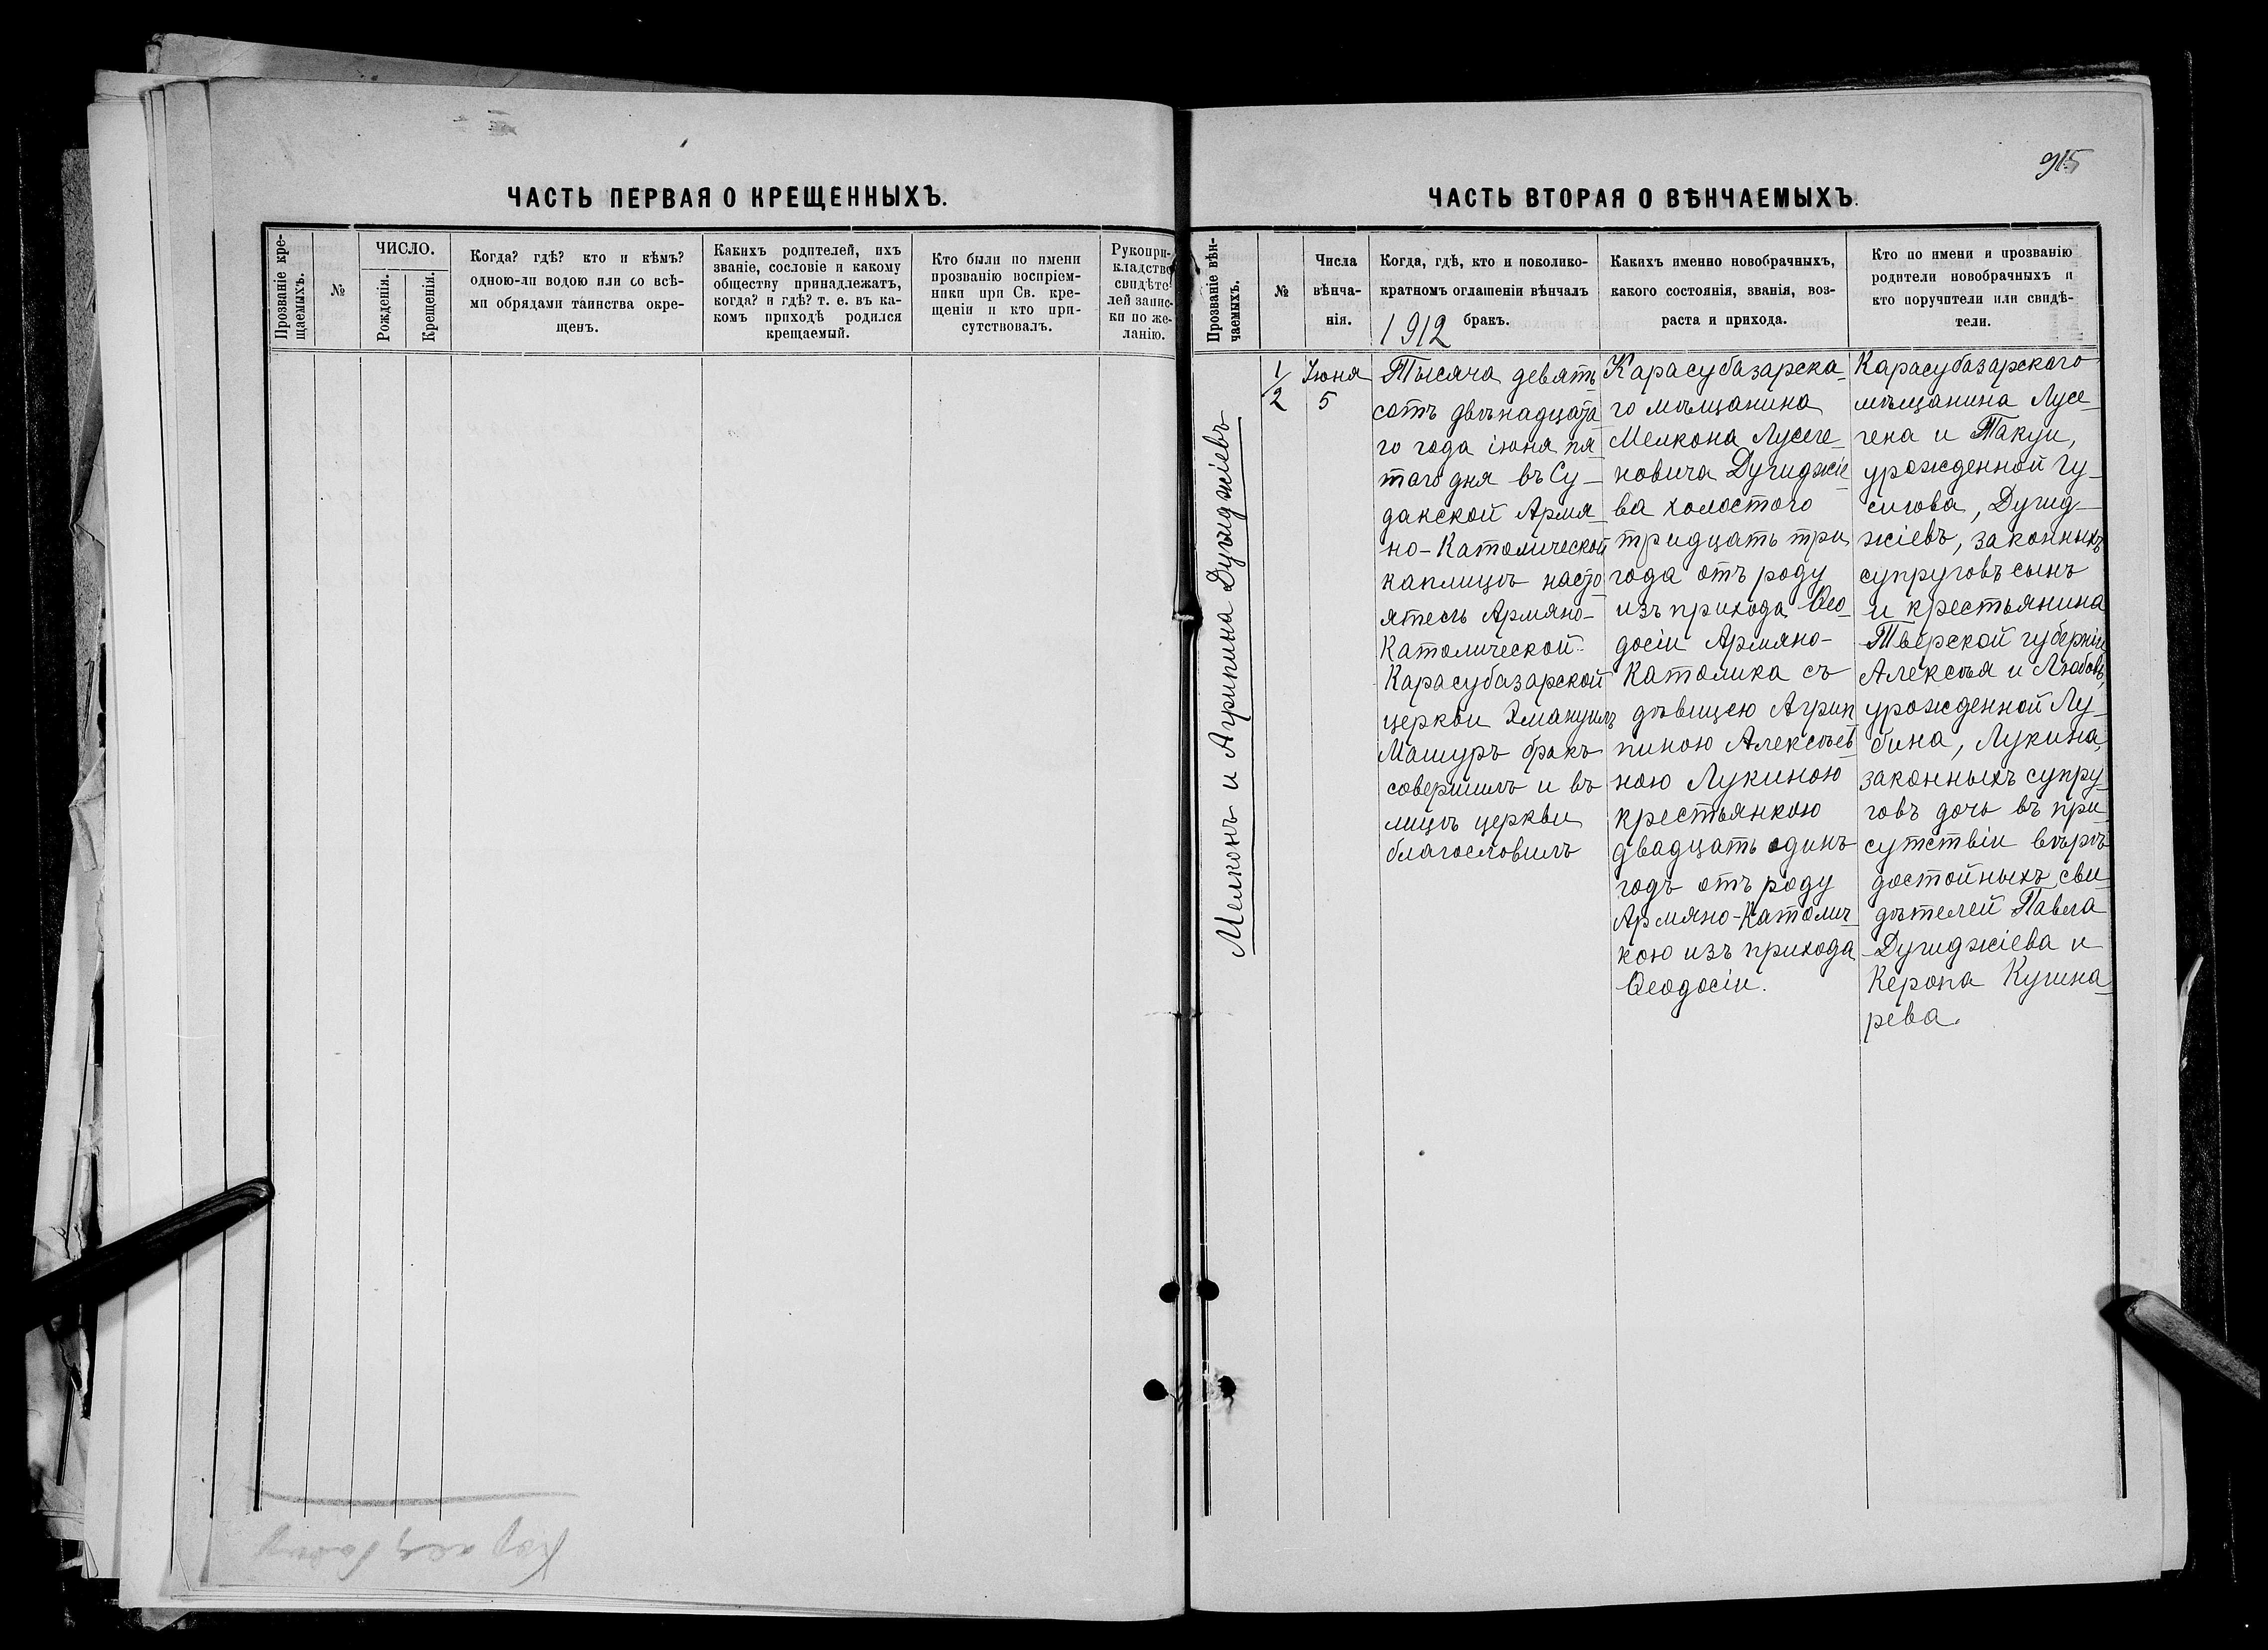 ЧАСТЬ ПЕРВАЯ О КРЕЩЕННЫХЪ.
Прозваніе кре-
щаемыхъ.
№
ЧИСЛО.
Рожденія.
Крещенія.
Когда? гдѣ? кто и кѣмъ?
одною-ли водою или со всѣ-
ми обрядами таинства окре-
щенъ.
Какихъ родителей, ихъ
званіе, сословіе и какому
обществу принадлежатъ,
когда? и гдѣ? т. е. въ ка-
комъ приходѣ родился
крещаемый.
Кто были по имени
прозванію воспріем-
ники при Св. кре-
щеніи и кто при-
сутствовалъ.
Рукопри-
кладство
свидѣте-
лей запис-
ки по же-
ланію.
ЧАСТЬ ВТОРАЯ О ВѢНЧАЕМЫХЪ.
Прозваніе вѣн-
чаемыхъ.
№
Числа
вѣнча-
нія.
Когда, гдѣ, кто и поколико-
кратномъ оглашеніи вѣнчалъ
1912 бракъ.
Какихъ именно новобрачныхъ,
какого состоянія, званія, воз-
раста и прихода.
Кто по имени и прозванію
родители новобрачныхъ и
кто поручители или свидѣ-
тели.
Мелконъ и Агрипина Дугиджіевъ
1/2
Іюня
5
Тысяча девять
сотъ двѣнадцата
го года іюня пя-
того дня въ Су-
дакской Армя-
но-Католической
каплицѣ насто
ятель Армяно-
Католической
Карасубазарской
церкви Эмануилъ
Машуръ бракъ
совершилъ и въ
лицѣ церкви
благословилъ
Карасубазарска-
го мѣщанина
Мелкона Лусеге-
новича Дугиджіе
ва холостого
тридцать три
года отъ роду
изъ прихода Ѳео-
досіи Армяно-
Католика съ
дѣвицею Агрип
пиною Алексѣев
ною Лукиною
крестьянкою
двадцать одинъ
годъ отъ роду
Армяно-Католич
кою изъ прихода
Ѳеодосіи.
Карасубазарского
мѣщанина Лусе-
гена и Такуи,
урожденной Гу-
сигова, Дугид-
жіевъ, законныхъ
супруговъ сынъ
и крестьянина
Тверской губерніи
Алексѣя и Любовь,
урожденной Лу-
бина, Лукина,
законныхъ супру-
говъ дочь въ при-
сутствіи вѣро
достойныхъ сви-
дѣтелей Павла
Дугиджіева и
Керопа Кушна-
рева.